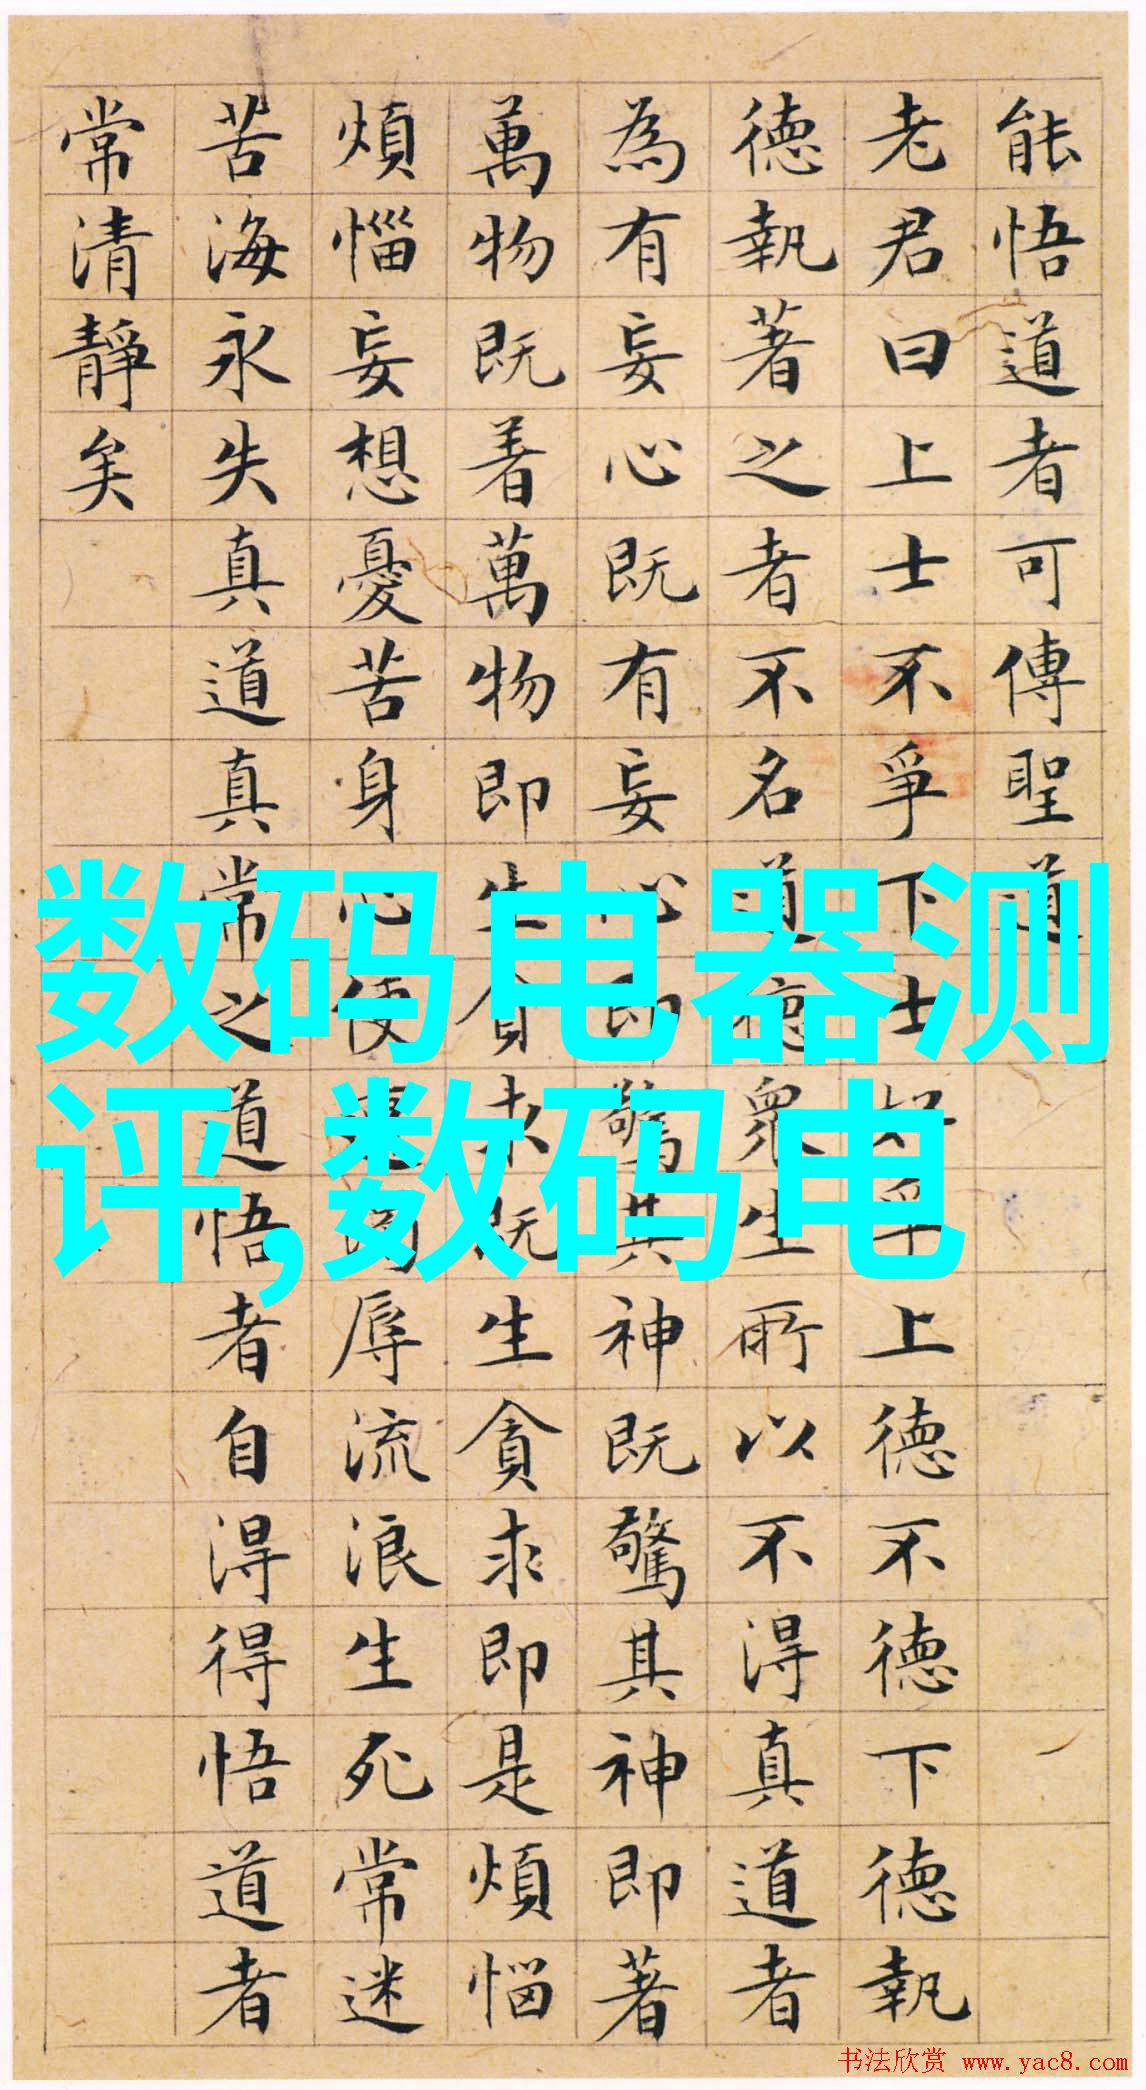 能悟道者可傳聖道
老君曰上士不爭下士好爭上德不德下德執
德執著之者不名道德眾生所以不得真道者
為有妄心既有妄心即驚其神既驚其神即著
萬物既着萬物即生貪求既生貪求即是煩惱
煩惱妄想憂苦身心便辱流浪生死常迷
苦海永失真道真常之道悟者自得得悟道者
常清靜矣
数码电器测
评,数码电
书法欣赏 www.yac8.com